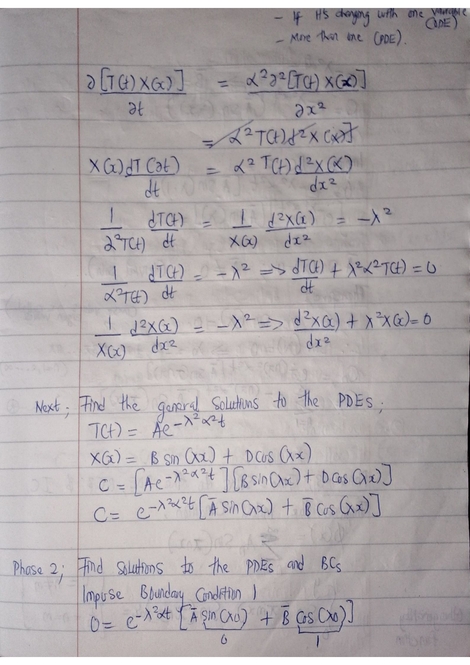 - If it's changing with one variable (ODE)
- More than one (PDE).
∂[T(t)X(x)]/∂t = α²∂²[T(t)X(x)]/∂x²
= α²T(t)d²X(x)]
X(x)dT(∂t)/dt = α²T(t)d²X(x)/dx²
1/∂²T(t) dT(t)/dt = 1/X(x) d²X(x)/dx² = -λ²
1/α²T(t) dT(t)/dt = -λ² => dT(t)/dt + λ²α²T(t) = 0
1/X(x) d²X(x)/dx² = -λ² => d²X(x)/dx² + λ²X(x) = 0
Next; Find the general solutions to the PDEs;
T(t) = Ae^-λ²α²t
X(x) = B sin(λx) + D cos(λx)
C = [Ae^-λ²α²t][B sin(λx) + D cos(λx)]
C = e^-λ²α²t [A̅ sin(λx) + B̅ cos(λx)]
Phase 2; Find solutions to the PDEs and BCs
Impose Boundary Condition 1
0 = e^-λ²αt [A̅ sin(λ0) + B̅ cos(λ0)]
0 1